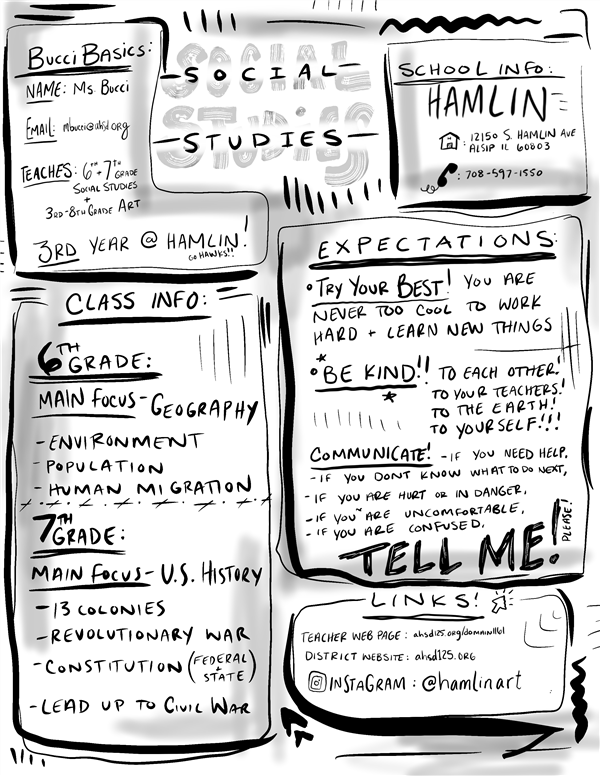 BUCCI BASICS:
NAME: Ms. Bucci
EMAIL: mbucci@ahsd.org
TEACHES: 6TH + 7TH GRADE
SOCIAL STUDIES
+
3RD-8TH GRADE ART
3RD YEAR @ HAMLIN!
GO HAWKS!!
SOCIAL
STUDIES
SOCIAL
STUDIES
SCHOOL INFO:
HAMLIN
: 12150 S. HAMLIN AVE
ALSIP IL 60803
: 708-597-1550
CLASS INFO:
6TH
GRADE:
MAIN FOCUS - GEOGRAPHY
- ENVIRONMENT
- POPULATION
- HUMAN MIGRATION
7TH
GRADE:
MAIN FOCUS - U.S. HISTORY
- 13 COLONIES
- REVOLUTIONARY WAR
- CONSTITUTION (FEDERAL
+
STATE)
- LEAD UP TO CIVIL WAR
EXPECTATIONS:
• TRY YOUR BEST! YOU ARE
NEVER TOO COOL TO WORK
HARD + LEARN NEW THINGS
• BE KIND!! TO EACH OTHER!
TO YOUR TEACHERS!
TO THE EARTH!
TO YOURSELF!!!
COMMUNICATE! - IF YOU NEED HELP.
- IF YOU DONT KNOW WHAT TO DO NEXT,
- IF YOU ARE HURT OR IN DANGER,
- IF YOU ARE UNCOMFORTABLE,
- IF YOU ARE CONFUSED,
TELL ME!
PLEASE!
LINKS!
TEACHER WEB PAGE: ahsd125.org/domain/1161
DISTRICT WEBSITE: ahsd125.ORG
INSTAGRAM: @hamlinart